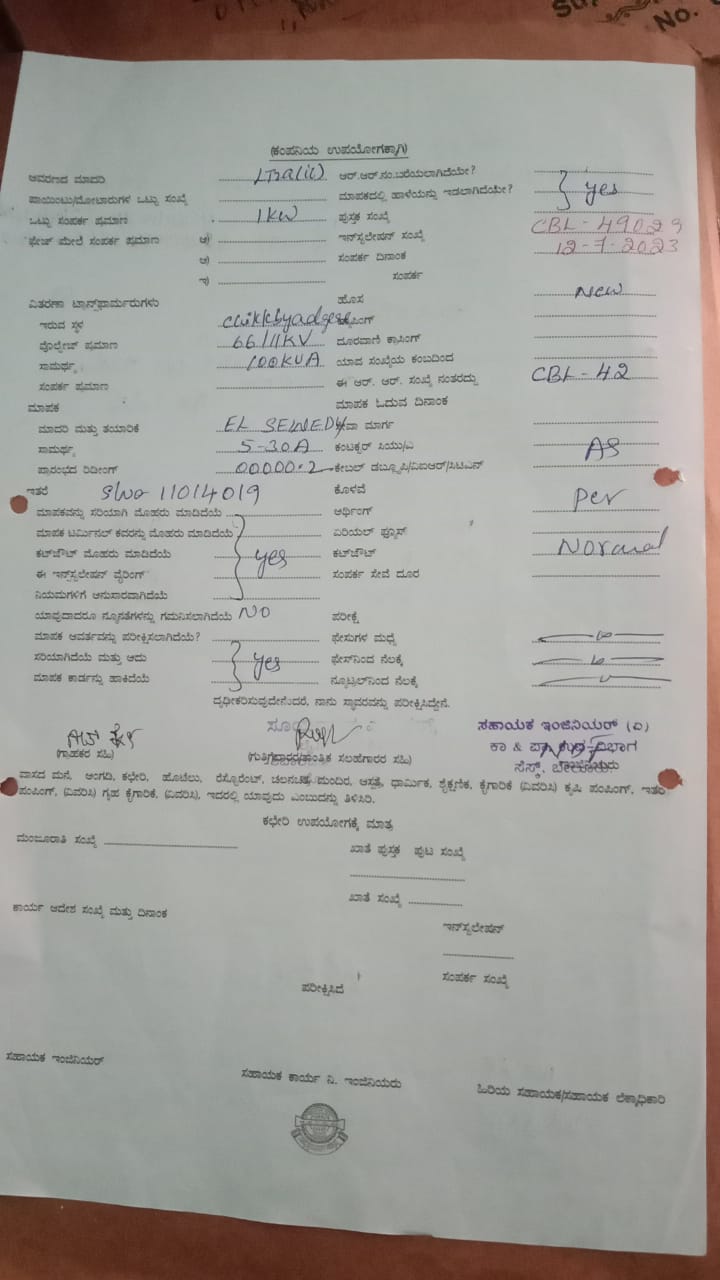 (ಕಂಪನಿಯ ಉಪಯೋಗಕ್ಕಾಗಿ)
ಆವರಣದ ಮಾದರಿ ಆರ್.ಆರ್.ನಂ.ಬರೆಯಲಾಗಿದೆಯೇ?
ಪಾಯಿಂಟು/ಮೋಟಾರುಗಳ ಒಟ್ಟು ಸಂಖ್ಯೆ ಮಾಪಕದಲ್ಲಿ ಹಾಳೆಯನ್ನು ಇಡಲಾಗಿದೆಯೇ? yes
ಒಟ್ಟು ಸಂಪರ್ಕ ಪ್ರಮಾಣ 1kw ಪುಸ್ತಕ ಸಂಖ್ಯೆ
ಫೇಜ್ ಮೇಲೆ ಸಂಪರ್ಕ ಪ್ರಮಾಣ ಅ) ಇನ್‌ಸ್ಟಲೇಷನ್ ಸಂಖ್ಯೆ CBL-49023
ಆ) ಸಂಪರ್ಕ ದಿನಾಂಕ 12-7-2023
ಇ) ಸಂಪರ್ಕ
ವಿತರಣಾ ಟ್ರಾನ್ಸ್‌ಫಾರ್ಮರುಗಳು ಹೊಸ New
ಇರುವ ಸ್ಥಳ
ವೋಲ್ಟೇಜ್ ಪ್ರಮಾಣ 66/11KV ದೂರವಾಣಿ ಕ್ರಾಸಿಂಗ್
ಸಾಮರ್ಥ್ಯ 100KVA ಯಾವ ಸಂಖ್ಯೆಯ ಕಂಬದಿಂದ
ಸಂಪರ್ಕ ಪ್ರಮಾಣ ಈ ಆರ್. ಆರ್. ಸಂಖ್ಯೆ ನಂತರದ್ದು CBL-42
ಮಾಪಕ ಮಾಪಕ ಓದುವ ದಿನಾಂಕ
ಮಾದರಿ ಮತ್ತು ತಯಾರಿಕೆ EL SEWEDY ಮಾರ್ಗ
ಸಾಮರ್ಥ್ಯ 5-30A ಕಂಟಕ್ಟರ್ ಸಿಯು/ಎ AS
ಪ್ರಾರಂಭದ ರಿಡೀಂಗ್ 00000.2 ಕೇಬಲ್ ಡಬ್ಲ್ಯೂಪಿ/ವಿಐಆರ್/ಸಿಟಿಎಸ್
ಇತರೆ slno 11014019 ಕೊಳವೆ Per
ಮಾಪಕವನ್ನು ಸರಿಯಾಗಿ ಮೊಹರು ಮಾಡಿದೆಯೆ ಅರ್ಥಿಂಗ್
ಮಾಪಕ ಟರ್ಮಿನಲ್ ಕವರನ್ನು ಮೊಹರು ಮಾಡಿದೆಯೆ ಏರಿಯಲ್ ಫ್ಯೂಸ್
ಕಟ್‌ಔಟ್ ಮೊಹರು ಮಾಡಿದೆಯೆ yes ಕಟ್‌ಔಟ್ Normal
ಈ ಇನ್‌ಸ್ಟಲೇಷನ್ ವೈರಿಂಗ್ ಸಂಪರ್ಕ ಸೇವೆ ದೂರ
ನಿಯಮಗಳಿಗೆ ಅನುಸಾರವಾಗಿದೆಯೆ
ಯಾವುದಾದರೂ ನ್ಯೂನತೆಗಳನ್ನು ಗಮನಿಸಲಾಗಿದೆಯೆ NO ಪರೀಕ್ಷೆ
ಮಾಪಕ ಆವರ್ತವನ್ನು ಪರೀಕ್ಷಿಸಲಾಗಿದೆಯೆ? ಫೇಸುಗಳ ಮಧ್ಯೆ
ಸರಿಯಾಗಿದೆಯೆ ಮತ್ತು ಅದು yes ಫೇಸ್‌ನಿಂದ ನೆಲಕ್ಕೆ
ಮಾಪಕ ಕಾರ್ಡನ್ನು ಹಾಕಿದೆಯೆ ನ್ಯೂಟ್ರಲ್‌ನಿಂದ ನೆಲಕ್ಕೆ
ದೃಢೀಕರಿಸುವುದೇನೆಂದರೆ, ನಾನು ಸ್ಥಾವರವನ್ನು ಪರೀಕ್ಷಿಸಿದ್ದೇನೆ.
ಸಹಾಯಕ ಇಂಜಿನಿಯರ್ (ವಿ)
(ಗ್ರಾಹಕರ ಸಹಿ) (ಗುತ್ತಿಗೆದಾರರ/ತಾಂತ್ರಿಕ ಸಲಹೆಗಾರರ ಸಹಿ)
ವಾಸದ ಮನೆ, ಅಂಗಡಿ, ಕಛೇರಿ, ಹೋಟೆಲು, ರೆಸ್ಟೊರೆಂಟ್, ಚಲನಚಿತ್ರ ಮಂದಿರ, ಆಸ್ಪತ್ರೆ, ಧಾರ್ಮಿಕ, ಶೈಕ್ಷಣಿಕ, ಕೈಗಾರಿಕೆ (ವಿವರಿಸಿ) ಕೃಷಿ ಪಂಪಿಂಗ್, ಇತರೆ
ಪಂಪಿಂಗ್, (ವಿವರಿಸಿ) ಗೃಹ ಕೈಗಾರಿಕೆ, (ವಿವರಿಸಿ), ಇದರಲ್ಲಿ ಯಾವುದು ಎಂಬುದನ್ನು ತಿಳಿಸಿರಿ.
ಕಛೇರಿ ಉಪಯೋಗಕ್ಕೆ ಮಾತ್ರ
ಮಂಜೂರಾತಿ ಸಂಖ್ಯೆ ಖಾತೆ ಪುಸ್ತಕ ಪುಟ ಸಂಖ್ಯೆ
ಖಾತೆ ಸಂಖ್ಯೆ
ಕಾರ್ಯ ಆದೇಶ ಸಂಖ್ಯೆ ಮತ್ತು ದಿನಾಂಕ
ಇನ್‌ಸ್ಟಲೇಷನ್
ಸಂಪರ್ಕ ಸಂಖ್ಯೆ
ಪರೀಕ್ಷಿಸಿದೆ
ಸಹಾಯಕ ಇಂಜಿನಿಯರ್ ಸಹಾಯಕ ಕಾರ್ಯ ನಿ. ಇಂಜಿನಿಯರು ಹಿರಿಯ ಸಹಾಯಕ/ಸಹಾಯಕ ಲೆಕ್ಕಾಧಿಕಾರಿ